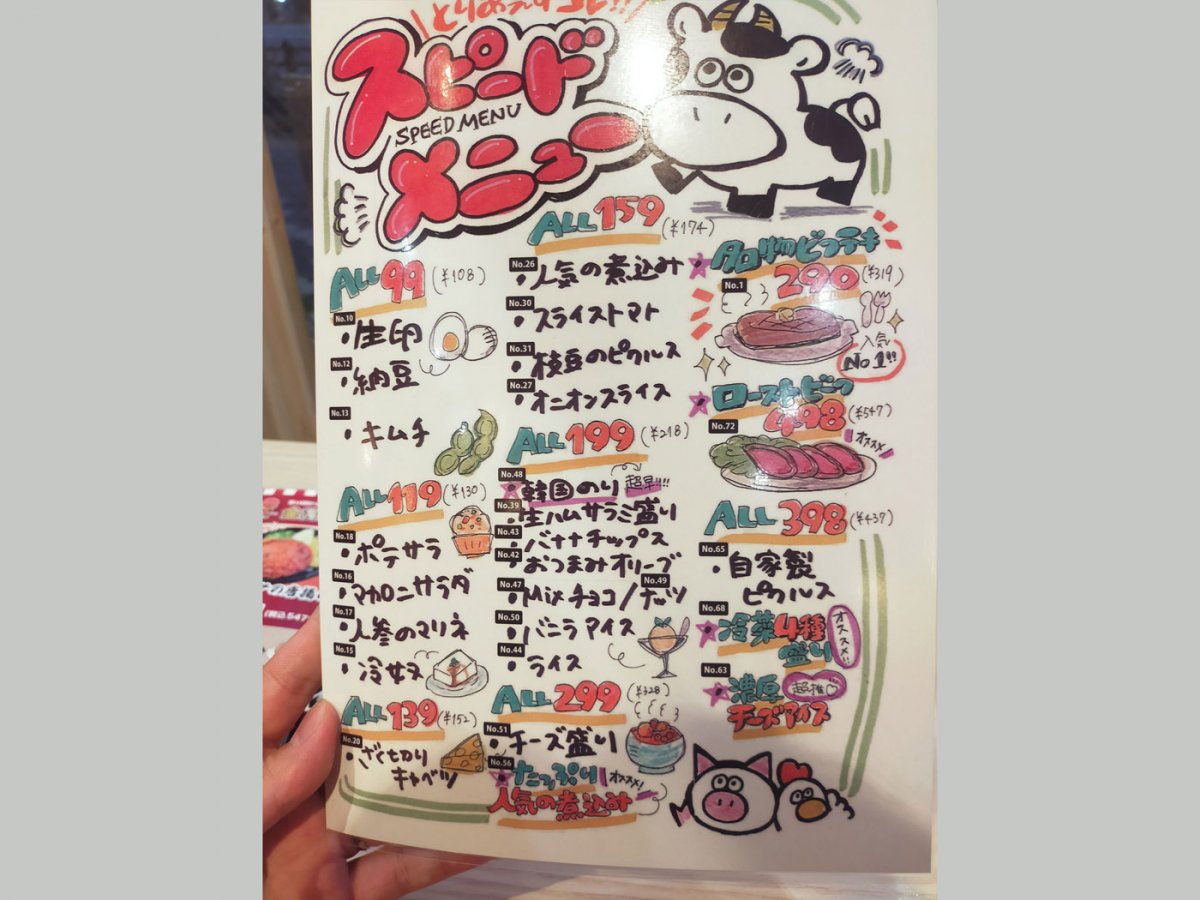 とりあえずコレ!!
スピード
SPEED MENU
メニュー
ALL 99 (¥108)
No.10
・生卵
No.12
・納豆
No.13
・キムチ
ALL 119 (¥130)
No.18
・ポテサラ
No.16
・マカロニサラダ
No.17
・人参のマリネ
No.15
・冷奴
ALL 139 (¥152)
No.20
・ざく切り
キャベツ
ALL 159 (¥174)
No.26
・人気の煮込み
No.30
・スライストマト
No.31
・枝豆のピクルス
No.27
・オニオンスライス
ALL 199 (¥218)
No.48
韓国のり 超早!!!
No.39
・生ハムサラミ盛り
No.43
・バナナチップス
No.42
・おつまみオリーブ
No.47 No.49
・Mixチョコ/ナッツ
No.50
・バニラアイス
No.44
・ライス
ALL 299 (¥328)
No.51
・チーズ盛り
No.56
たっぷり オススメ!
人気の煮込み
名物ビフテキ
No.1
290 (¥319)
人気
No1!!
ローストビーフ
No.72
498 (¥547)
オススメ!
ALL 398 (¥437)
No.65
・自家製
ピクルス
No.68
冷菜4種
盛り
オススメ!!
No.63
濃厚 超推♡
チーズアイス
の唐揚
(税込547